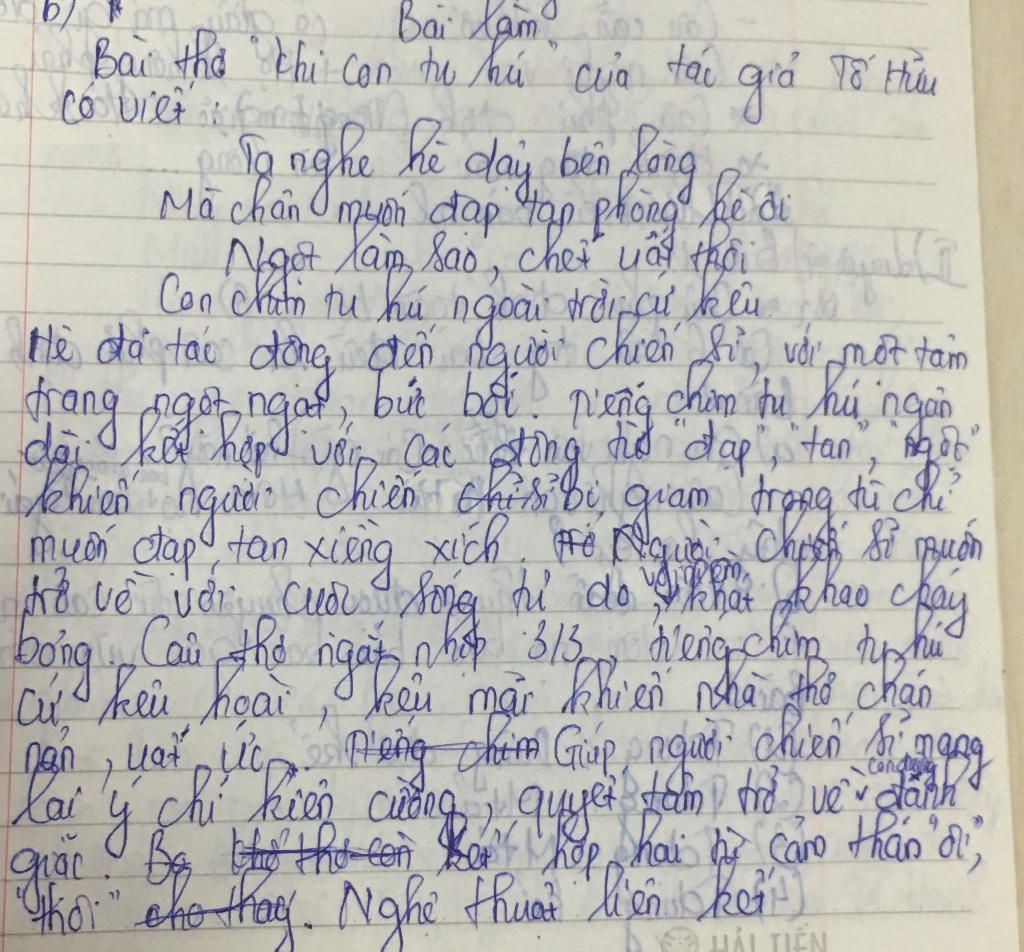 b)
Bài làm
Bài thơ "khi con tu hú" của tác giả Tố Hữu
có viết:
Ta nghe hè dậy bên lòng
Mà chân muốn đạp tan phòng hè ôi
Ngột làm sao, chết uất thôi
Con chim tu hú ngoài trời cứ kêu
Hè đã tác động đến người chiến sĩ, với một tâm
trạng ngột ngạt, bức bối. Tiếng chim tu hú ngân
dài kết hợp với các động từ "đạp", "tan", "ngột"
khiến người chiến sĩ bị giam trong tù chỉ
muốn đạp tan xiềng xích. Người chiến sĩ muốn
trở về với cuộc sống tự do, với niềm khát khao cháy
bỏng. Câu thơ ngắt nhịp 3/3, tiếng chim tu hú
cứ kêu hoài, kêu mãi khiến nhà thơ chán
nản, uất ức... Tiếng chim Giúp người chiến sĩ mang
lại ý chí kiên cường, quyết tâm trở về đánh
giặc. Kết hợp hai từ cảm thán "ôi",
"thôi" cho thay. Nghệ thuật liên kết
HẢI TIẾN